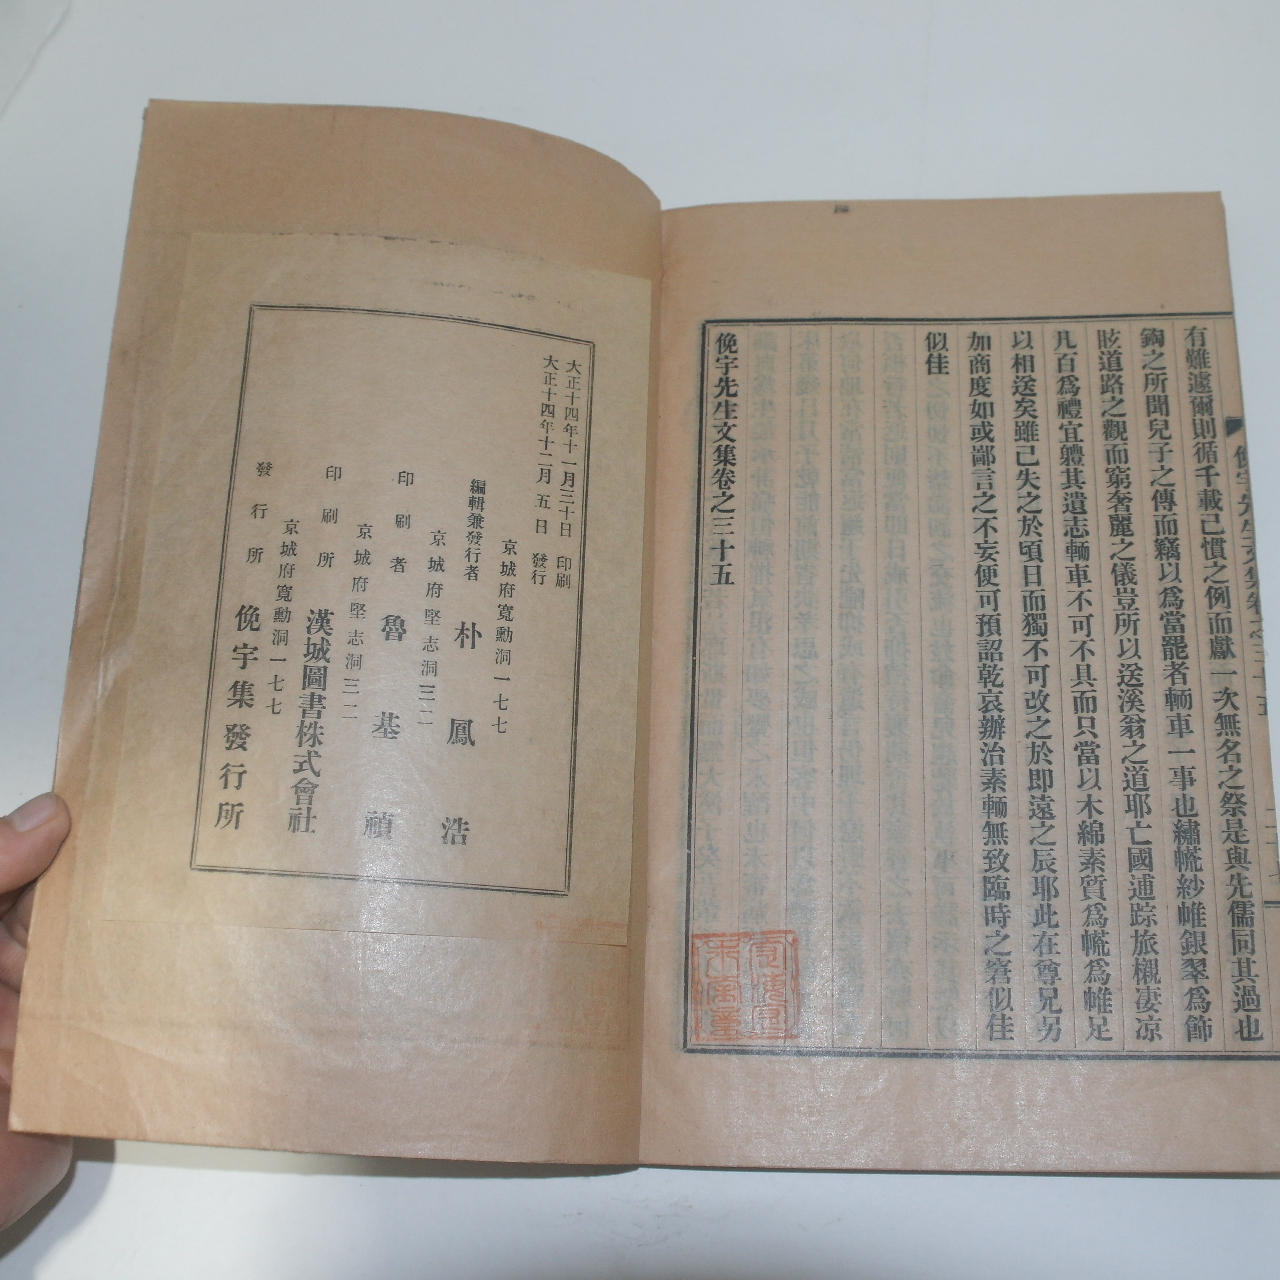 俛宇先生文集卷之三十五
有難遽爾則循千載已慣之例而獻一次無名之祭是與先儒同其過也
鋾之所聞兒子之傳而竊以爲當罷者輀車一事也繡㡆紗帷銀翠爲飾
眩道路之觀而窮奢麗之儀豈所以送溪翁之道耶亡國逋踪旅櫬凄凉
凡百爲禮宜體其遺志輀車不可不具而只當以木綿素質爲㡆爲帷足
以相送矣雖已失之於頃日而獨不可改之於即遠之辰耶此在尊兄另
加商度如或鄙言之不妄便可預詔乾哀辦治素輀無致臨時之窘似佳
似佳
俛宇先生文集卷之三十五
大正十四年十一月三十日 印刷
大正十四年十二月 五 日 發行
京城府寬勳洞一七七
編輯兼發行者 朴鳳浩
京城府堅志洞三二
印刷者 魯基禎
京城府堅志洞三二
印刷所 漢城圖書株式會社
京城府寬勳洞一七七
發行所 俛宇集發行所